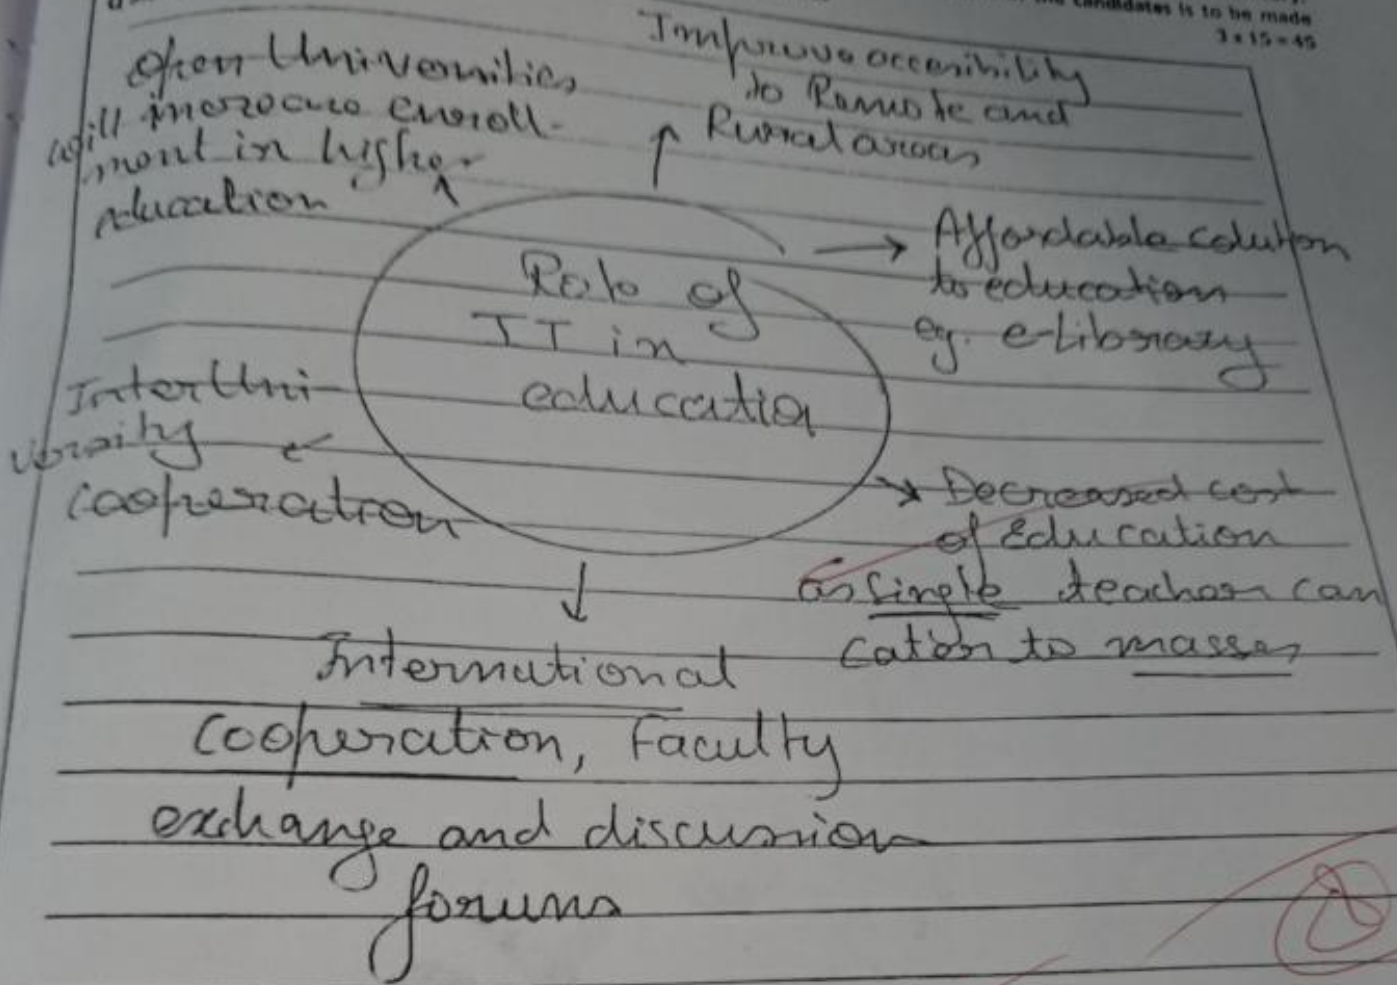 candidates is to be made
3 x 15 = 45
Open Universities
will increase enroll-
ment in higher
education
Improve accessibility
to Remote and
Rural areas
Affordable solution
to education
eg. e-library
Role of
IT in
education
Inter Uni
versity
cooperation
Decreased cost
of Education
as single teacher can
cater to masses
International
cooperation, Faculty
exchange and discussion
forums